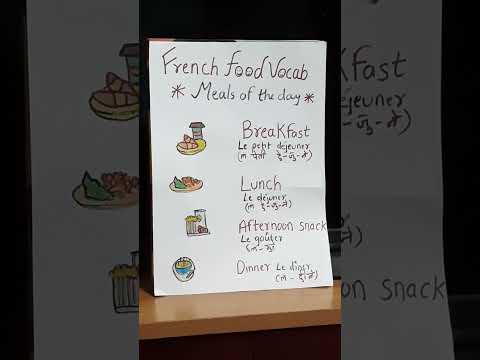 French food Vocab
* Meals of the day *
Breakfast
Le petit déjeuner
(ल पेती
Lunch
Le déjeuner
Afternoon snack
Le goûter
Dinner Le dîner